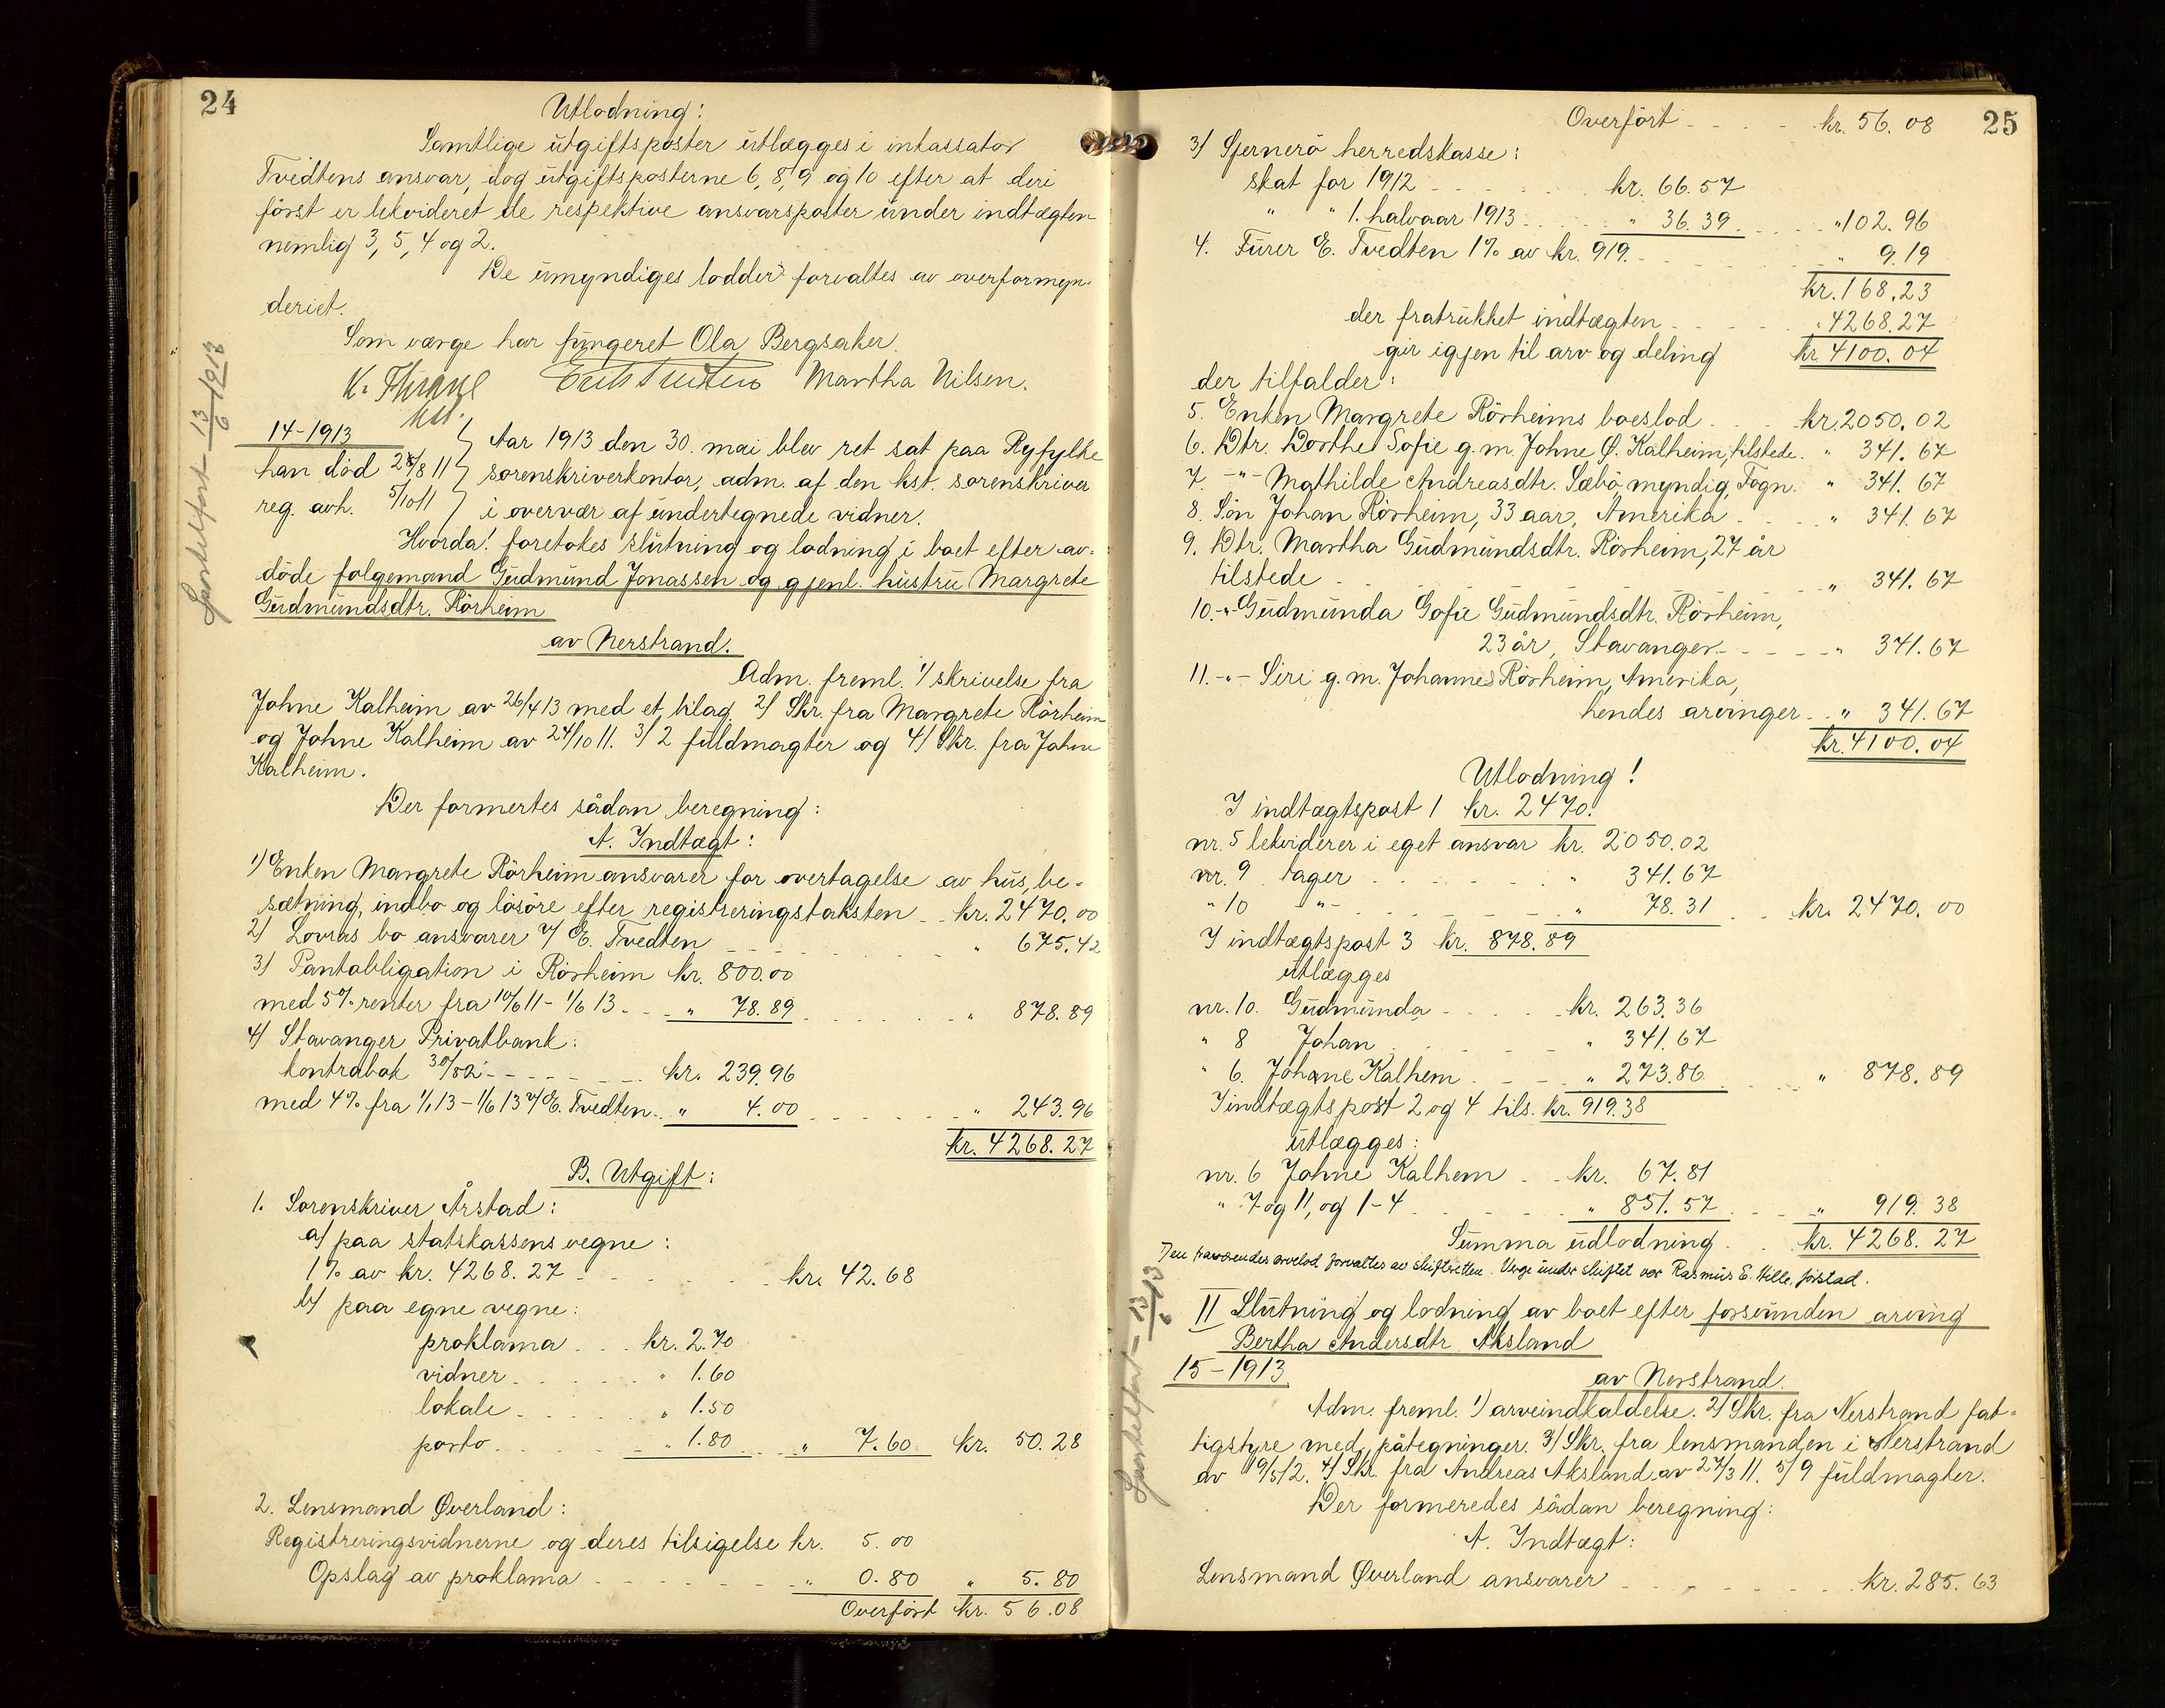 24
Utlodning:
Samtlige utgiftsposter utlægges i inkassator
Tvedtens ansvar, dog utgiftsposterne 6, 8, 9 og 10 efter at deri
først er lekvideret de respektive ansvarsposter under indtægten
nemlig 3, 5, 4 og 2.
De umyndiges lodder forvaltes av overformyn-
deriet.
Som værge har fungeret Ola Bergsaker.
Martha Nilsen.
kst.
14-1913
han död 28/8 11
reg. avh. 5/10 11
Aar 1913 den 30. mai blev ret sat paa Ryfylke
sorenskriverkontor, adm. af den kst. sorenskriver
i overvær af undertegnede vidner.
Hvorda! foretokes slutning og lodning i boet efter av-
döde folgemand Gudmund Jonassen og gjenl. hustru Margrete
Gudmundsdtr. Rörheim
av Nerstrand.
Adm. freml. 1/ skrivelse fra
Johne Kalheim av 26/4 13 med et bilag. 2/ Skr. fra Margrete Rörheim
og Johne Kalheim av 24/10 11. 3/ 2 fuldmagter og 4/ Skr. fra Johne
Kalheim.
Der formertes sådan beregning:
A. Indtægt:
1) Enken Margrete Rörheim ansvarer for overtagelse av hus, be-
sætning, indbo og lösöre efter registreringstaksten kr. 2470.00
2) Lovras bo ansvarer v/ E. Tvedten " 675.42
3) Pantobligation i Rörheim kr. 800.00
med 5% renter fra 10/6 11 - 1/6 13 " 78.89 " 878.89
4) Stavanger Privatbank:
kontrabok 30/82 kr. 239.96
med 4% fra 1/1 13 - 1/6 13 v/ E. Tvedten " 4.00 " 243.96
kr. 4268.27
B. Utgift:
1. Sorenskriver Årstad:
a/ paa statskassens vegne:
1% av kr. 4268.27 kr. 42.68
b/ paa egne vegne:
proklama kr. 2.70
vidner " 1.60
lokale " 1.50
porto " 1.80 " 7.60 kr. 50.28
2. Lensmand Øverland:
Registreringsvidnerne og deres tilsigelse kr. 5.00
Opslag av proklama " 0.80 " 5.80
Overført kr. 56.08
25
Overført kr. 56.08
3/ Sjernerö herredskasse:
skat for 1912 kr. 66.57
" " 1. halvaar 1913 " 36.39 " 102.96
4. Furer E. Tvedten 1% av kr. 919. " 9.19
kr. 168.23
der fratrukket indtægten " 4268.27
gir igjen til arv og deling kr 4100.04
der tilfalder:
5. Enken Margrete Rörheims boeslod kr. 2050.02
6. Dtr. Dorthe Sofie g. m. Johne Ø. Kalheim, tilstede. " 341.67
7. -"- Mathilde Andreasdtr. Sæbö, myndig, Fogn. " 341.67
8. Sön Johan Rörheim, 33 aar, Amerika " 341.67
9. Dtr. Martha Gudmundsdtr. Rörheim, 27 år
tilstede " 341.67
10. -"- Gudmunda Sofie Gudmundsdtr. Rörheim,
23 år, Stavanger " 341.67
11. -"- Siri g. m. Johannes Rörheim, Amerika,
hendes arvinger " 341.67
kr. 4100.04
Utlodning!
I indtægtspost 1 kr. 2470.
nr. 5 lekviderer i eget ansvar kr. 2050.02
nr. 9 tager " 341.67
" 10 -"- " 78.31 kr. 2470.00
I indtægtspost 3 kr. 878.89
utlægges
nr. 10. Gudmunda kr. 263.36
" 8 Johan " 341.67
" 6. Johane Kalhem " 273.86 " 878.89
I indtægtspost 2 og 4 tils. kr. 919.38
utlægges:
nr. 6 Johne Kalhem kr. 67.81
" 7 og 11, og 1-4 " 851.57 " 919.38
Summa udlodning kr. 4268.27
arvelod forvaltes av skifteretten. Verge under skiftet var Rasmus E. Hille,
II Slutning og lodning av boet efter forsvunden arving
Bertha Andersdtr. Aksland
15-1913
av Nerstrand.
Adm. freml. 1) arveindkaldelse. 2) Skr. fra Nerstrand fat-
tigstyre med påtegninger. 3) Skr. fra lensmanden i Nerstrand
av 19/5 12. 4) Skr. fra Andreas Aksland av 27/3 11. 5/ 9 fuldmagter.
Der formeredes sådan beregning:
A. Indtægt:
Lensmand Øverland ansvarer kr. 285.63